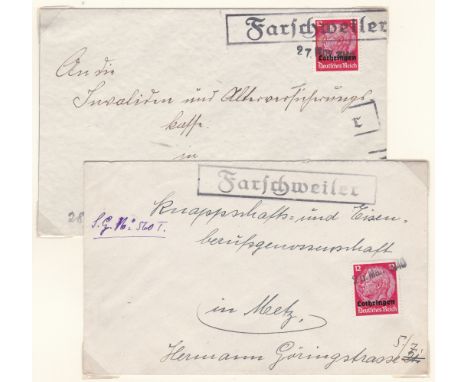 Farschweiler
12
27.
Lothringen
Deutsches Reich
An die
Invaliden und Altersversicherungs
kasse
in
Farschweiler
S.G. No: 560 T.
Knappschafts- und Eisen-
berufsgenossenschaft
12
Lothringen
Deutsches Reich
in Metz,
Hermann Göringstrasse 5/7